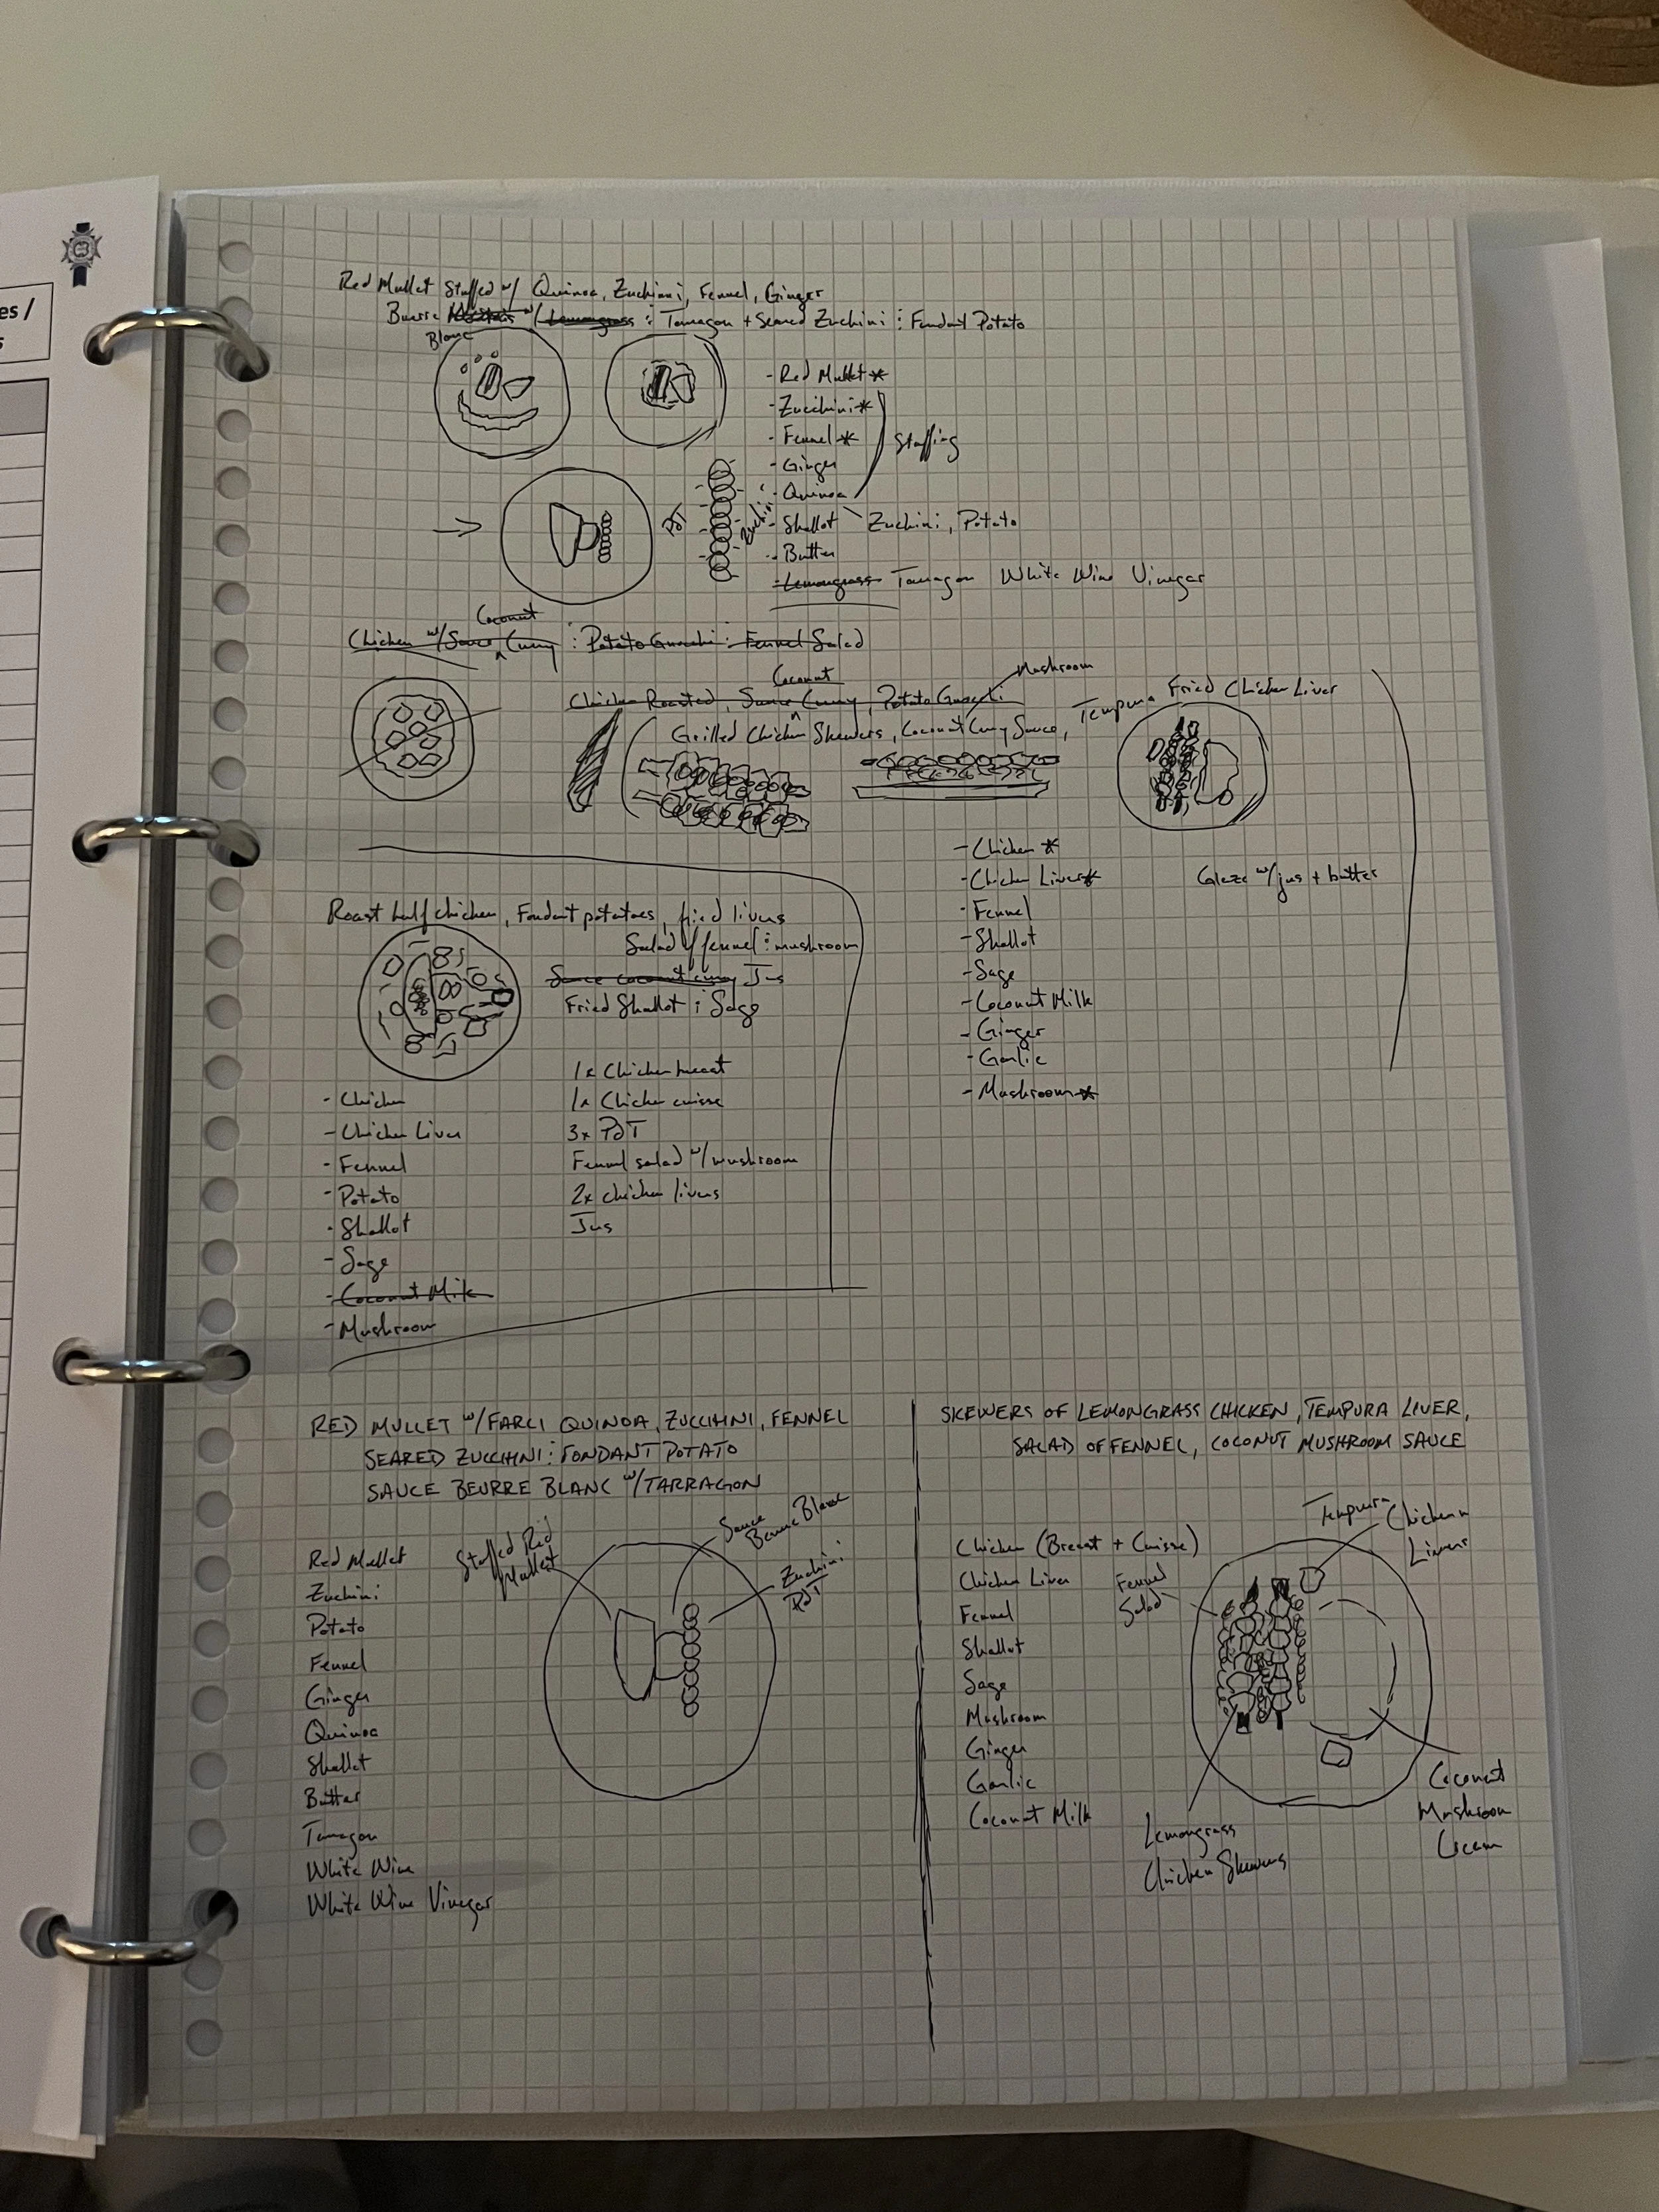 es /
s
Red Mullet Stuffed w/ Quinoa, Zuchinni, Fennel, Ginger
Buerre w/ Lemongrass : Tarragon + Seared Zuchini : Fondant Potato
Blanc
- Red Mullet *
- Zucchini *
- Fennel *
Stuffing
- Ginger
- Quinoa
PdT
Zuchini
- Shallot
Zuchini, Potato
- Butter
- Lemongrass Tarragon White Wine Vinegar
Coconut
Chicken w/ Sauce Curry : Potato Gnocchi : Fennel Salad
Mushroom
Coconut
Chicken Roasted, Sauce Curry, Potato Gnocchi
Tempura Fried Chicken Liver
Grilled Chicken Skewers, Coconut Curry Sauce,
- Chicken *
- Chicken Liver *
Glaze w/ jus + butter
- Fennel
- Shallot
- Sage
- Coconut Milk
- Ginger
- Garlic
- Mushroom *
Roast half chicken, Fondant potatoes, fried livers
Salad of fennel : mushroom
Sauce coconut curry Jus
Fried Shallot : Sage
1x Chicken breast
- Chicken
1x Chicken cuisse
- Chicken Liver
3x PdT
- Fennel
Fennel salad w/ mushroom
- Potato
2x chicken livers
- Shallot
Jus
- Sage
- Coconut Milk
- Mushroom
RED MULLET w/ FARCI QUINOA, ZUCCHINI, FENNEL
SEARED ZUCCHINI : FONDANT POTATO
SAUCE BEURRE BLANC w/ TARRAGON
Stuffed Red
Mullet
Sauce
Beurre Blanc
Zuchini
PdT
Red Mullet
Zuchini
Potato
Fennel
Ginger
Quinoa
Shallot
Butter
Tarragon
White Wine
White Wine Vinegar
SKEWERS OF LEMONGRASS CHICKEN, TEMPURA LIVER,
SALAD OF FENNEL, COCONUT MUSHROOM SAUCE
Tempura
Chicken
Livers
Chicken (Breast + Cuisse)
Chicken Liver
Fennel
Salad
Fennel
Shallot
Sage
Mushroom
Ginger
Garlic
Coconut Milk
Lemongrass
Chicken Skewers
Coconut
Mushroom
Cream